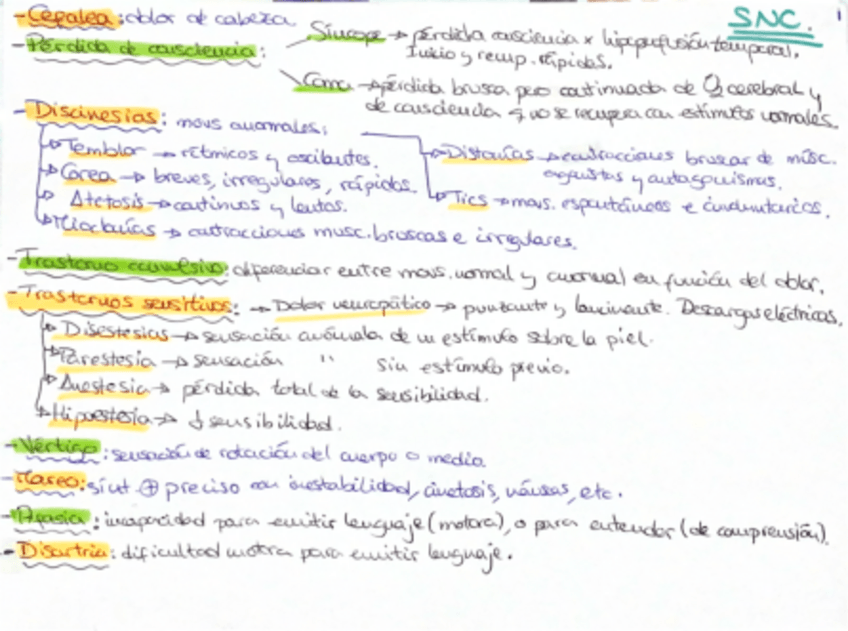 SNC. 1
- Cefalea: dolor de cabeza.
- Pérdida de consciencia: Síncope → pérdida consciencia x hipoperfusión temporal. Inicio y recup. rápidos.
Coma → pérdida brusca pero continuada de O2 cerebral y
de consciencia q no se recupera con estímulos normales.
- Discinesias: movs anormales:
→ Temblor → rítmicos y oscilantes.
→ Corea → breves, irregulares, rápidos.
→ Atetosis → continuos y lentos.
→ Mioclonías → contracciones musc. bruscas e irregulares.
→ Distonías → contracciones bruscas de músc.
agonistas y antagonismas.
→ Tics → movs. espontáneos e involuntarios.
- Trastorno convulsivo: diferenciar entre movs. normal y anormal en función del dolor.
- Trastornos sensitivos: → Dolor neuropático → punzante y lancinante. Descargas eléctricas.
→ Disestesias → sensación anómala de un estímulo sobre la piel.
→ Parestesia → sensación " sin estímulo previo.
→ Anestesia → pérdida total de la sensibilidad.
→ Hipoestesia → ↓ sensibilidad.
- Vértigo: sensación de rotación del cuerpo o media
- Mareo: sínt. ⊕ preciso con inestabilidad, cinetosis, náuseas, etc.
- Afasia: incapacidad para emitir lenguaje (motora), o para entender (de comprensión).
- Disartria: dificultad motora para emitir lenguaje.